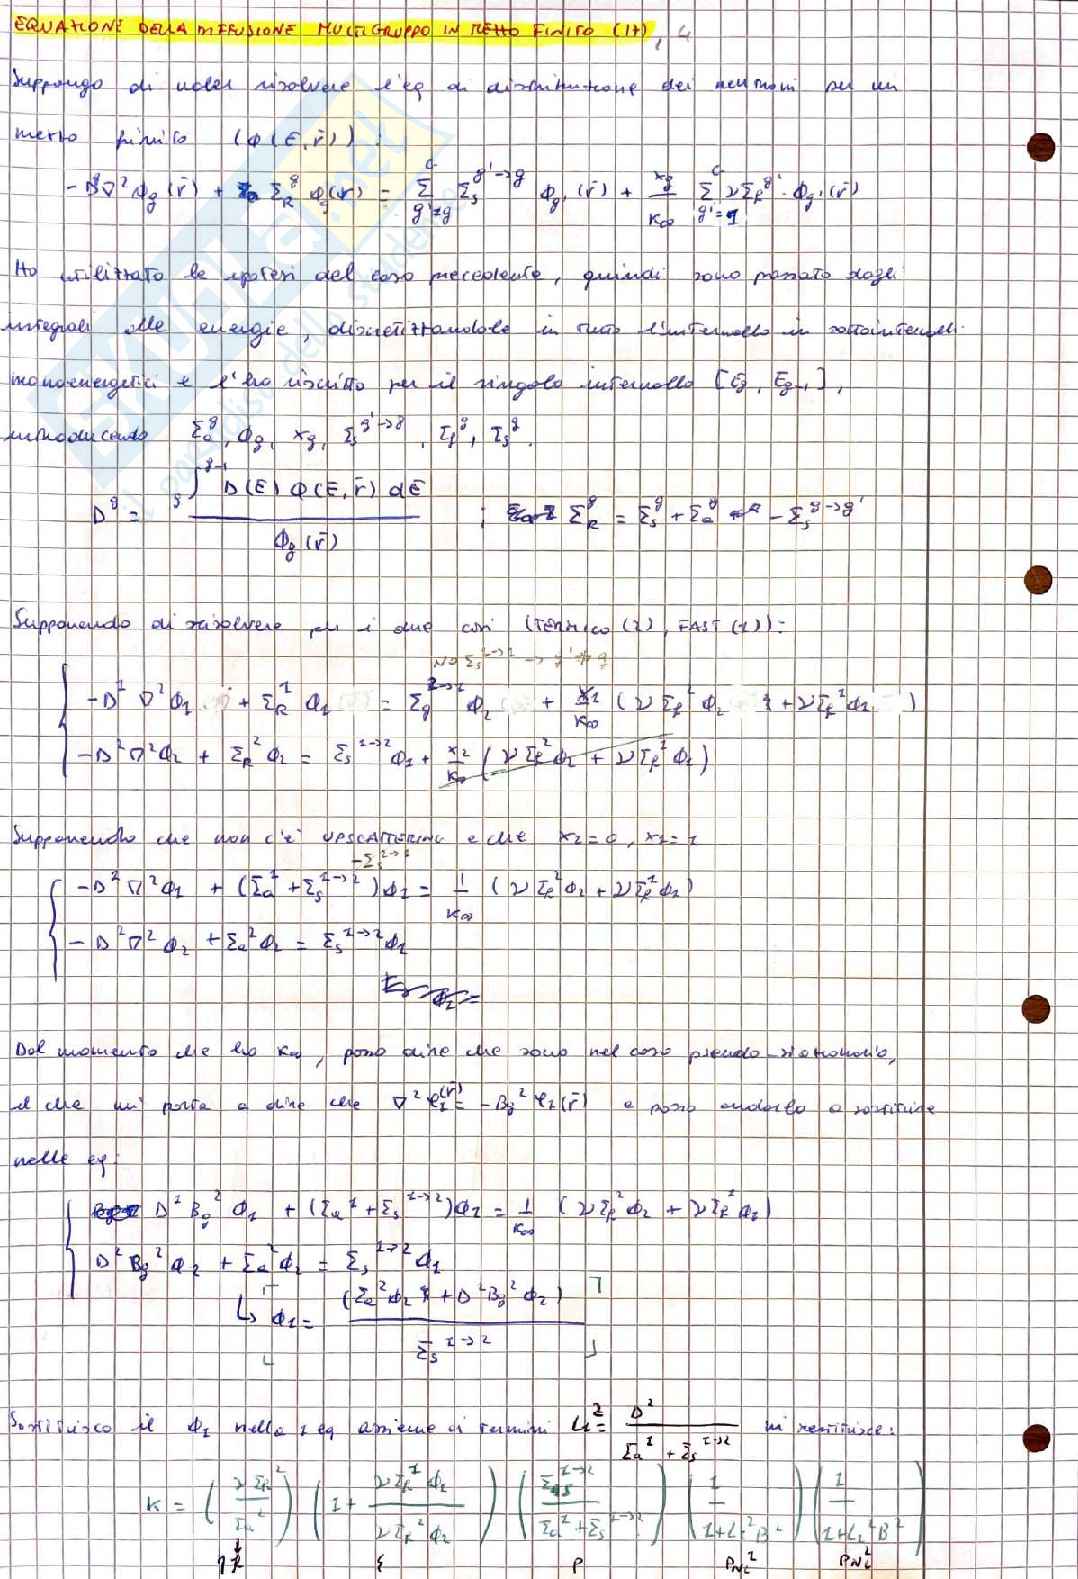 EQUAZIONE DELLA DIFFUSIONE MULTIGRUPPO IN MEZZO FINITO (1H), 4
Suppongo di voler risolvere l'eq di distribuzione dei neutroni per un
mezzo finito (Φ(E, r̄)) :
-D^g∇²Φg(r̄) + Σ_R^g Φg(r̄) = Σ_{g'≠g}^G Σs^{g'→g} Φg'(r̄) + χg/K∞ Σ_{g'=1}^G νΣf^{g'} · Φg'(r̄)
Ho utilizzato le ipotesi del caso precedente, quindi sono passato dagli
integrali alle energie, discretizzandole in tutto l'intervallo in sottointervalli
monoenergetici e l'ho riscritto per il singolo intervallo [Eg, Eg-1],
introducendo Σa^g, Φg, χg, Σs^{g'→g}, Σf^g, Σs^g.
D^g = ∫_g^{g-1} D(E) Φ(E, r̄) dE / Φg(r̄) ; Σ_R^g = Σs^g + Σa^g - Σs^{g→g'}
Supponendo di risolvere per i due casi (TERMICO (2), FAST (1)):
NO Σs^{1→1} → g'≠g
-D¹ ∇²Φ1 + Σ_R^1 Φ1 = Σs^{2→1} Φ2 + χ1/K∞ (νΣf²Φ2 + νΣf¹Φ1)
-D²∇²Φ2 + Σ_R²Φ2 = Σs^{1→2}Φ1 + χ2/K∞ (νΣf²Φ2 + νΣf¹Φ1)
Supponendo che non c'è UPSCATTERING e che χ2=0, χ1=1
-D¹∇²Φ1 + (Σa¹ + Σs^{1→2})Φ1 = 1/K∞ (νΣf²Φ2 + νΣf¹Φ1)
-D²∇²Φ2 + Σa²Φ2 = Σs^{1→2}Φ1
Dal momento che ho K∞, posso dire che sono nel caso pseudo-stazionario,
il che mi porta a dire che ∇²φ1(r̄) = -Bg²φ1(r̄) e posso andarlo a sostituire
nelle eq:
D¹Bg²Φ1 + (Σa¹ + Σs^{1→2})Φ1 = 1/K∞ (νΣf²Φ2 + νΣf¹Φ1)
D²Bg²Φ2 + Σa²Φ2 = Σs^{1→2}Φ1
↳ Φ1 = (Σa²Φ2 + D²Bg²Φ2) / Σs^{1→2}
Sostituisco il Φ1 nella 1 eq assieme ai termini L1² = D¹ / (Σa¹ + Σs^{1→2}) mi restituisce:
K = (νΣf²/Σa²) (1 + νΣf¹Φ1/νΣf²Φ2) (Σs^{1→2}/(Σa¹+Σs^{1→2})) (1/(1+L1²B²)) (1/(1+L2²B²))
ηf ε p PNL² PNL²